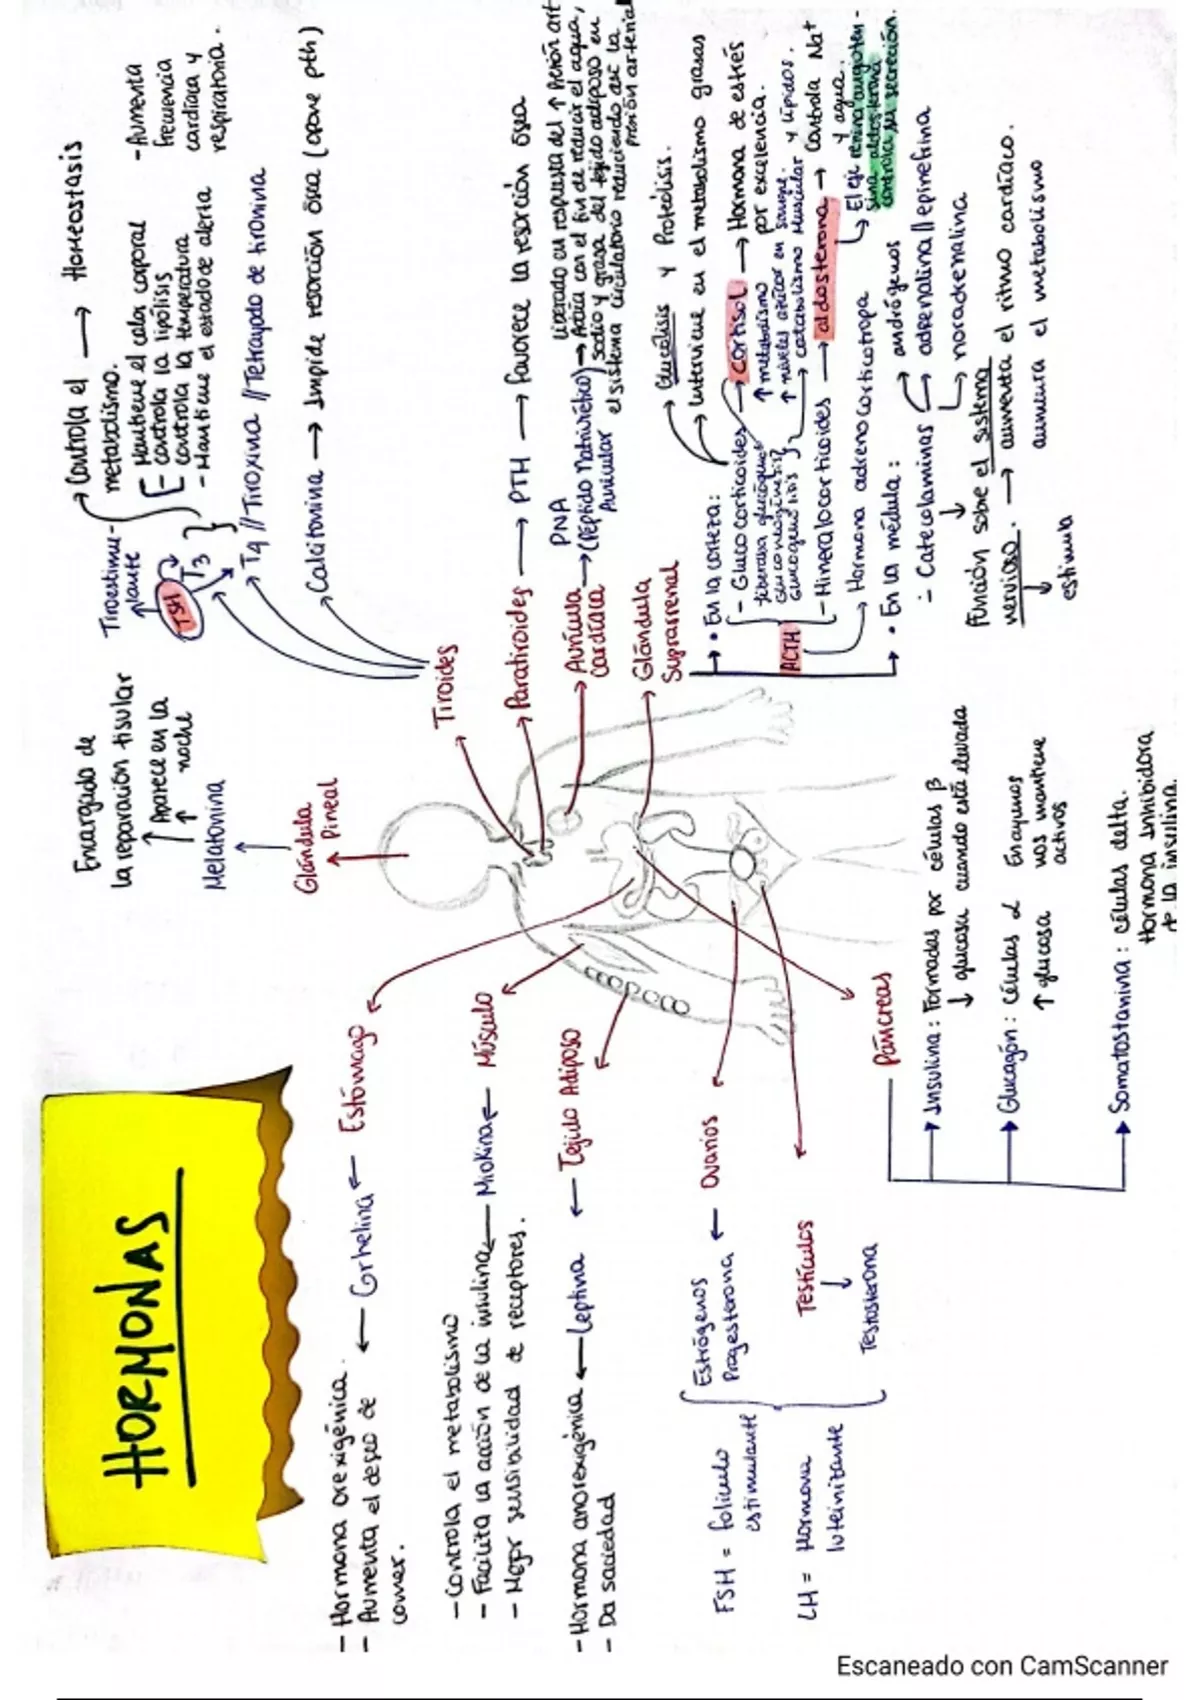 HORMONAS
Encargado de
la reparación tisular
Aparece en la
noche
Melatonina
Glándula
Pineal
Tiroestimu-
lante
TSH
T3
Controla el → Homeostasis
metabolismo.
- Mantiene el calor corporal
- controla la lipólisis
controla la temperatura
- Mantiene el estado de alerta
- Aumenta
frecuencia
cardíaca y
respiratoria.
T4 // Tiroxina // Tetrayodo de tironina
Calcitonina → Impide resorción ósea (opone pth)
Tiroides
Paratiroides → PTH → favorece la resorción ósea
Aurícula
cardíaca
PNA
(Péptido Natriurético)
Auricular
liberado en respuesta del ↑ Presión art
Actúa con el fin de reducir el agua,
sodio y grasa del tejido adiposo en
el sistema circulatorio reduciendo así la
presión arterial
Glándula
Suprarrenal
• En la corteza:
Glucólisis y Proteólisis.
Interviene en el metabolismo grasas
- Glucocorticoides
cortisol → Hormona de estrés
por excelencia.
liberara glucógeno
Gluconeogénesis
Glucogenolisis
↑ metabolismo
↑ niveles azúcar en sangre.
catabolismo muscular y lípidos.
- Mineralocorticoides → aldosterona → Controla Na+
y agua.
El eje renina angioten-
sina aldosterona
controla su secreción.
ACTH
Hormona adrenocorticotropa
• En la médula:
andrógenos
- Catecolaminas
adrenalina // epinefrina
noradrenalina
Función sobre el sistema
nervioso. → aumenta el ritmo cardíaco.
aumenta el metabolismo
estimula
Estómago
← Grhelina ←
- Hormona orexigénica.
- Aumenta el deseo de
comer.
Músculo
Miokina
- Controla el metabolismo
- Facilita la acción de la insulina
- Mejor sensibilidad de receptores.
Tejido Adiposo
- Hormona anorexigénica ← Leptina ←
- Da saciedad
Ovarios
Estrógenos
Progesterona ←
FSH = folículo
estimulante
LH = Hormona
luteinizante
Testículos
↓
Testosterona
Páncreas
Insulina: Formadas por células β
↓ glucosa cuando está elevada
Glucagón: células α
↑ glucosa
En ayunos
nos mantiene
activos
Somatostanina: células delta.
Hormona inhibidora
de la insulina
Escaneado con CamScanner